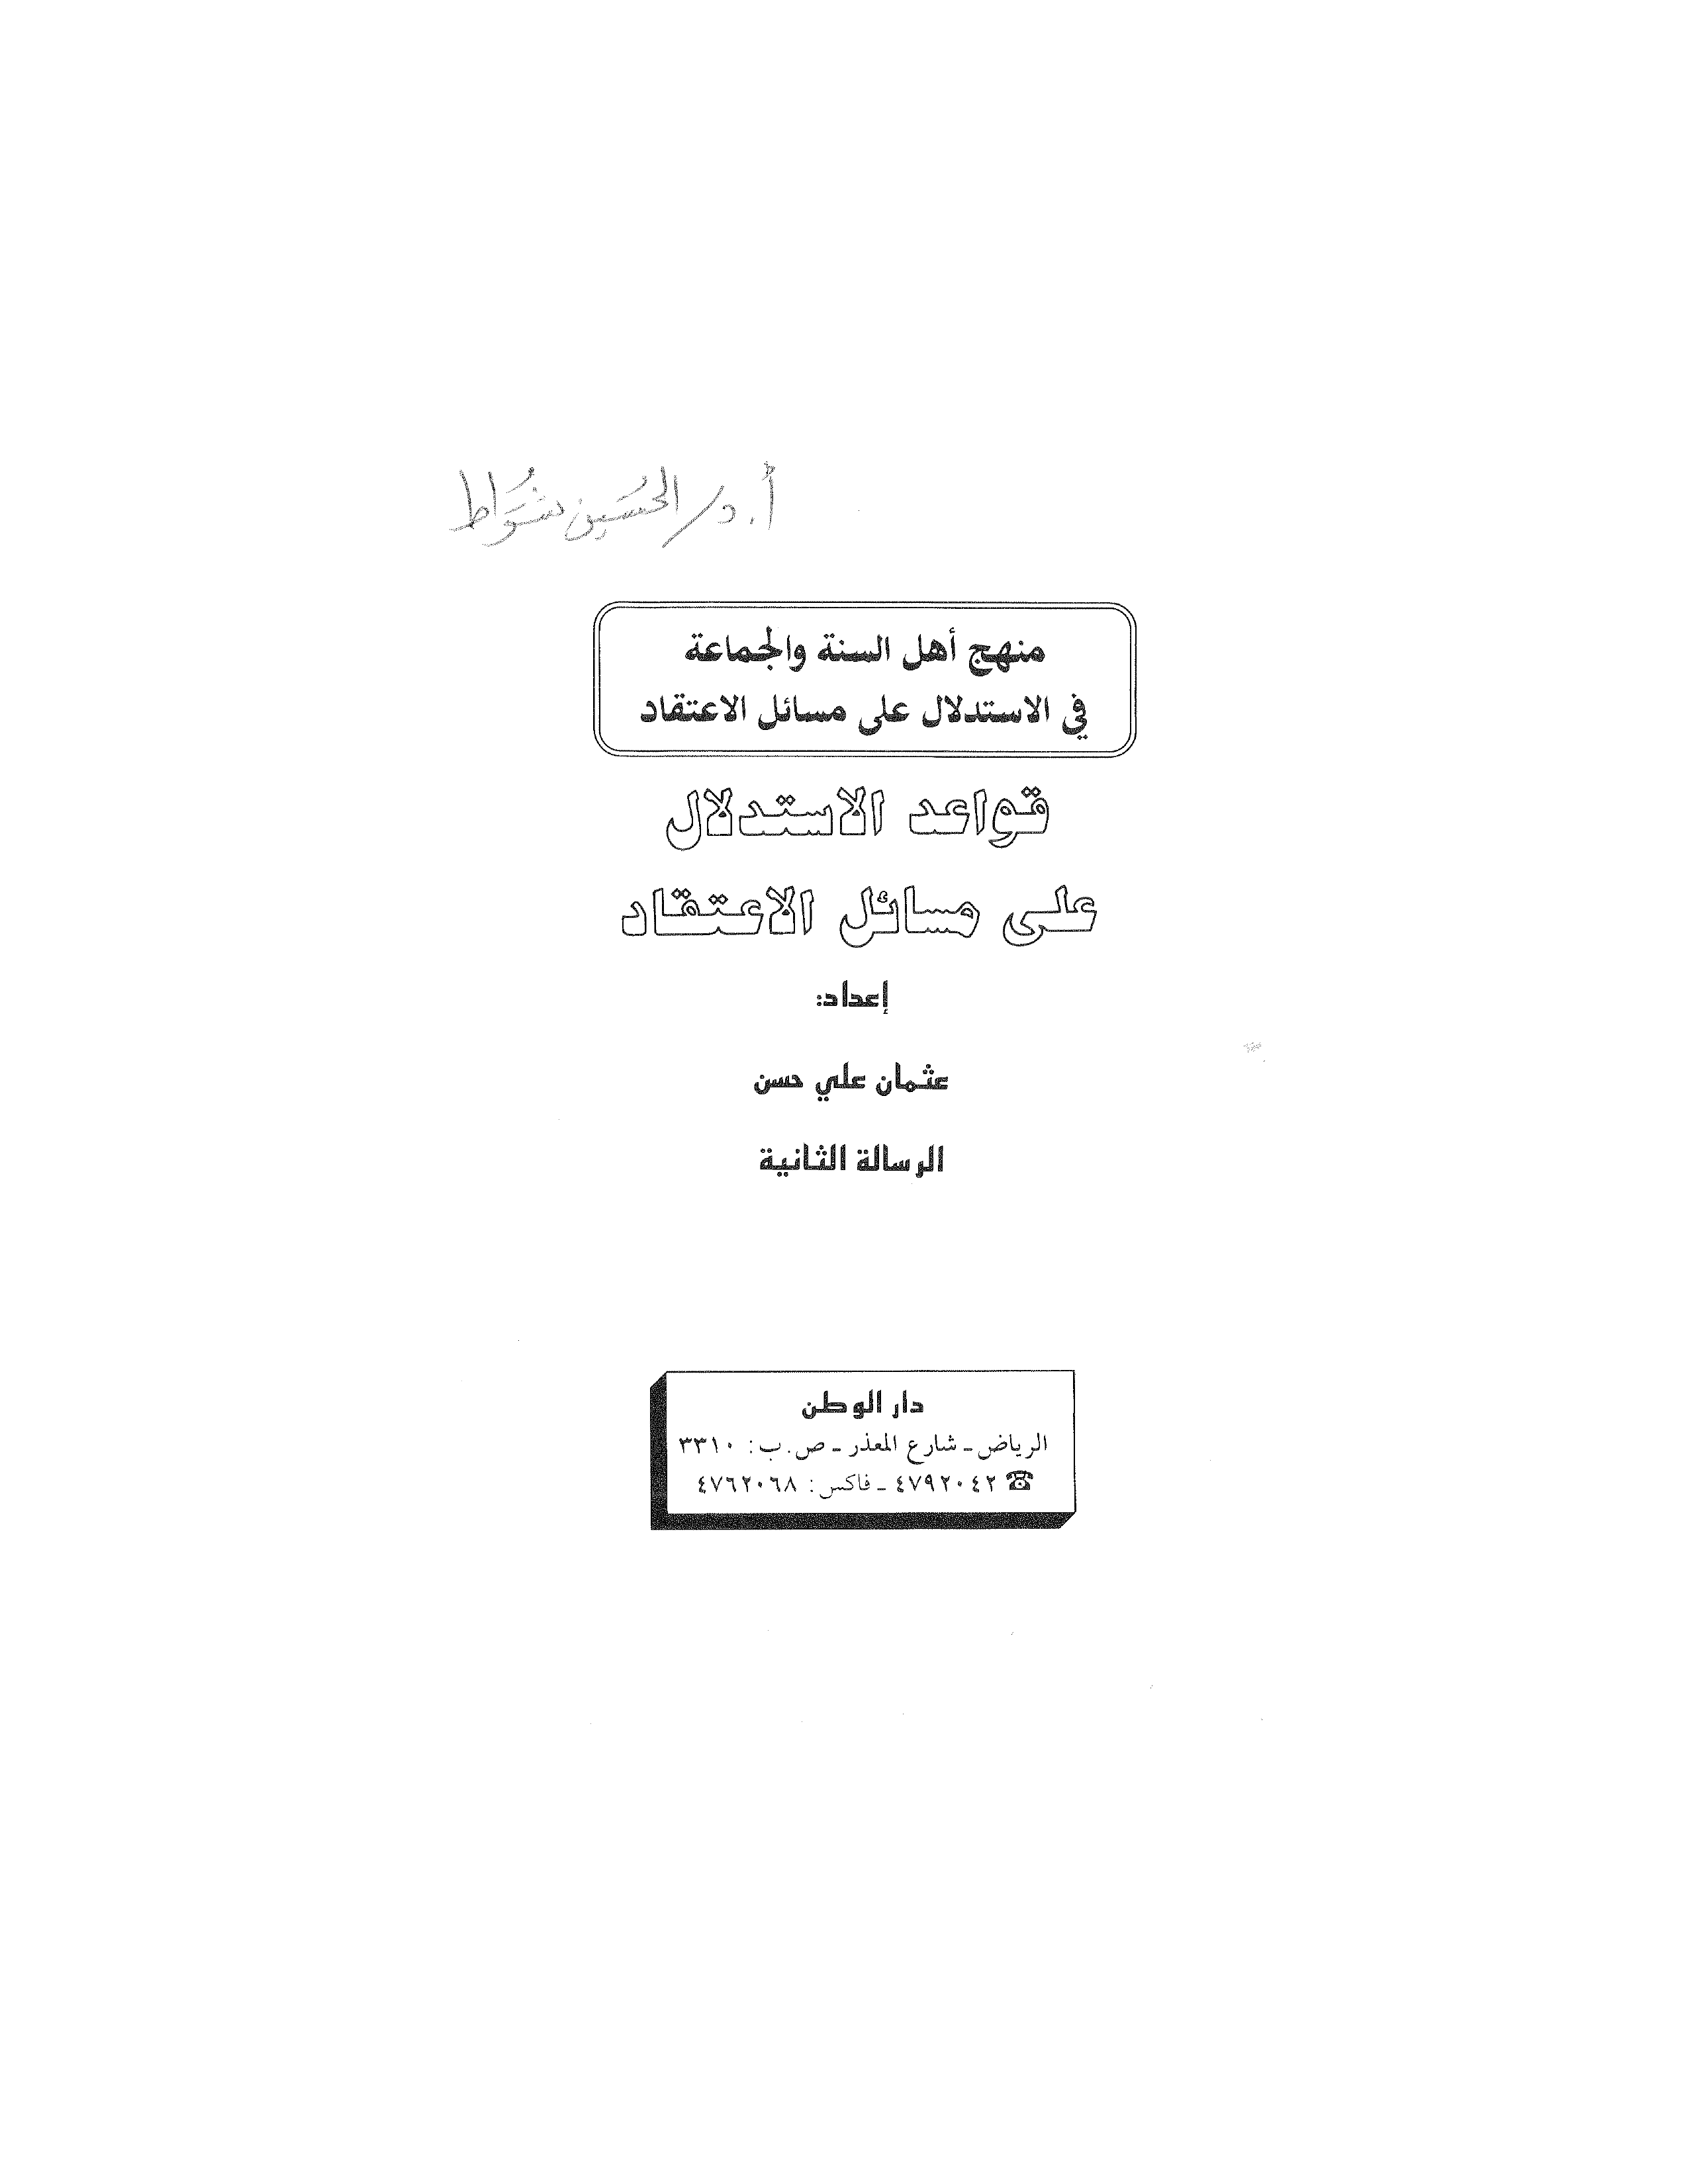 أ.د/ الحسين شواط
منهج أهل السنة والجماعة
في الاستدلال على مسائل الاعتقاد
قواعد الاستدلال
على مسائل الاعتقاد
إعداد:
عثمان علي حسن
الرسالة الثانية
دار الوطن
الرياض ـ شارع المعذر ـ ص. ب: ٣٣١٠
☎ ٤٧٩٢٠٤٢ ـ فاكس: ٤٧٦٢٠٦٨